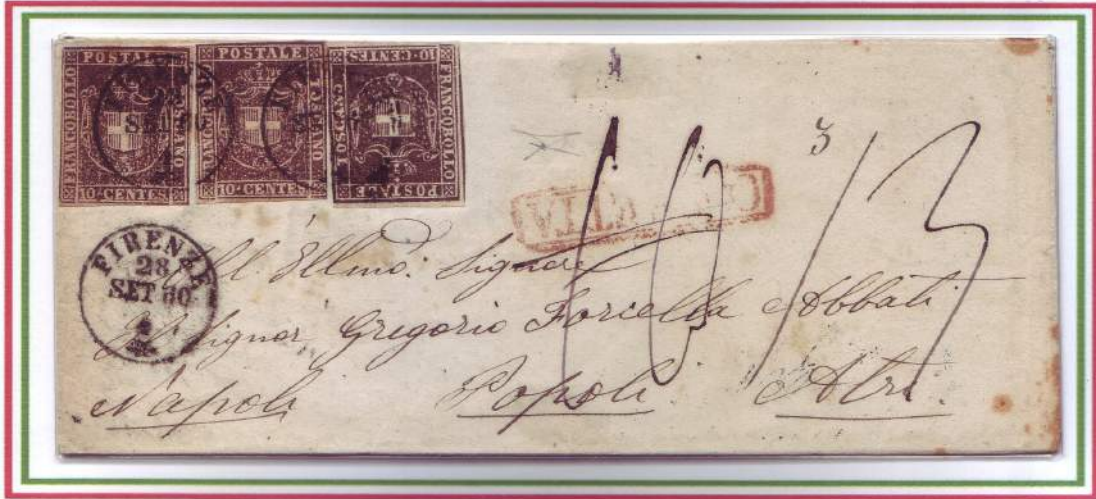 POSTALE
FRANCOBOLLO
TOSCANO
10·CENTES
POSTALE
FRANCOBOLLO
TOSCANO
10·CENTES
10·CENTES
FRANCOBOLLO
TOSCANO
POSTALE
SET 60
3
FIRENZE
28
SET 60
4
All' Illmo: Signore
Il Signor Gregorio Forcella Abbati
Napoli Popoli Atri.